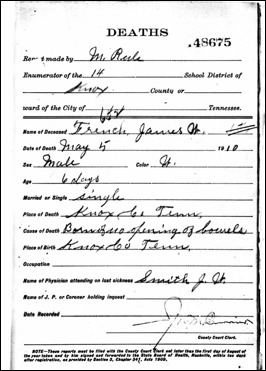 DEATHS
.48675
Report made by M. Rule
Enumerator of the 14 School District of
Knox County or
ward of the City of Tennessee.
Name of Deceased French, James W.
Date of Death May 5 1910
Sex Male Color W.
Age 6 days
Married or Single single
Place of Death Knox Co Tenn,
Cause of Death Born no opening of bowels
Place of Birth Knox Co Tenn,
Occupation
Name of Physician attending on last sickness Smith J. W.
Name of J. P. or Coroner holding inquest
Date Recorded
County Court Clerk.
NOTE—These reports must be filed with the County Court Clerk not later than the first day of August of
the year taken and by him signed and forwarded to the State Board of Health, Nashville, within ten days
after registration, as provided by Section 2, Chapter Acts 1909.